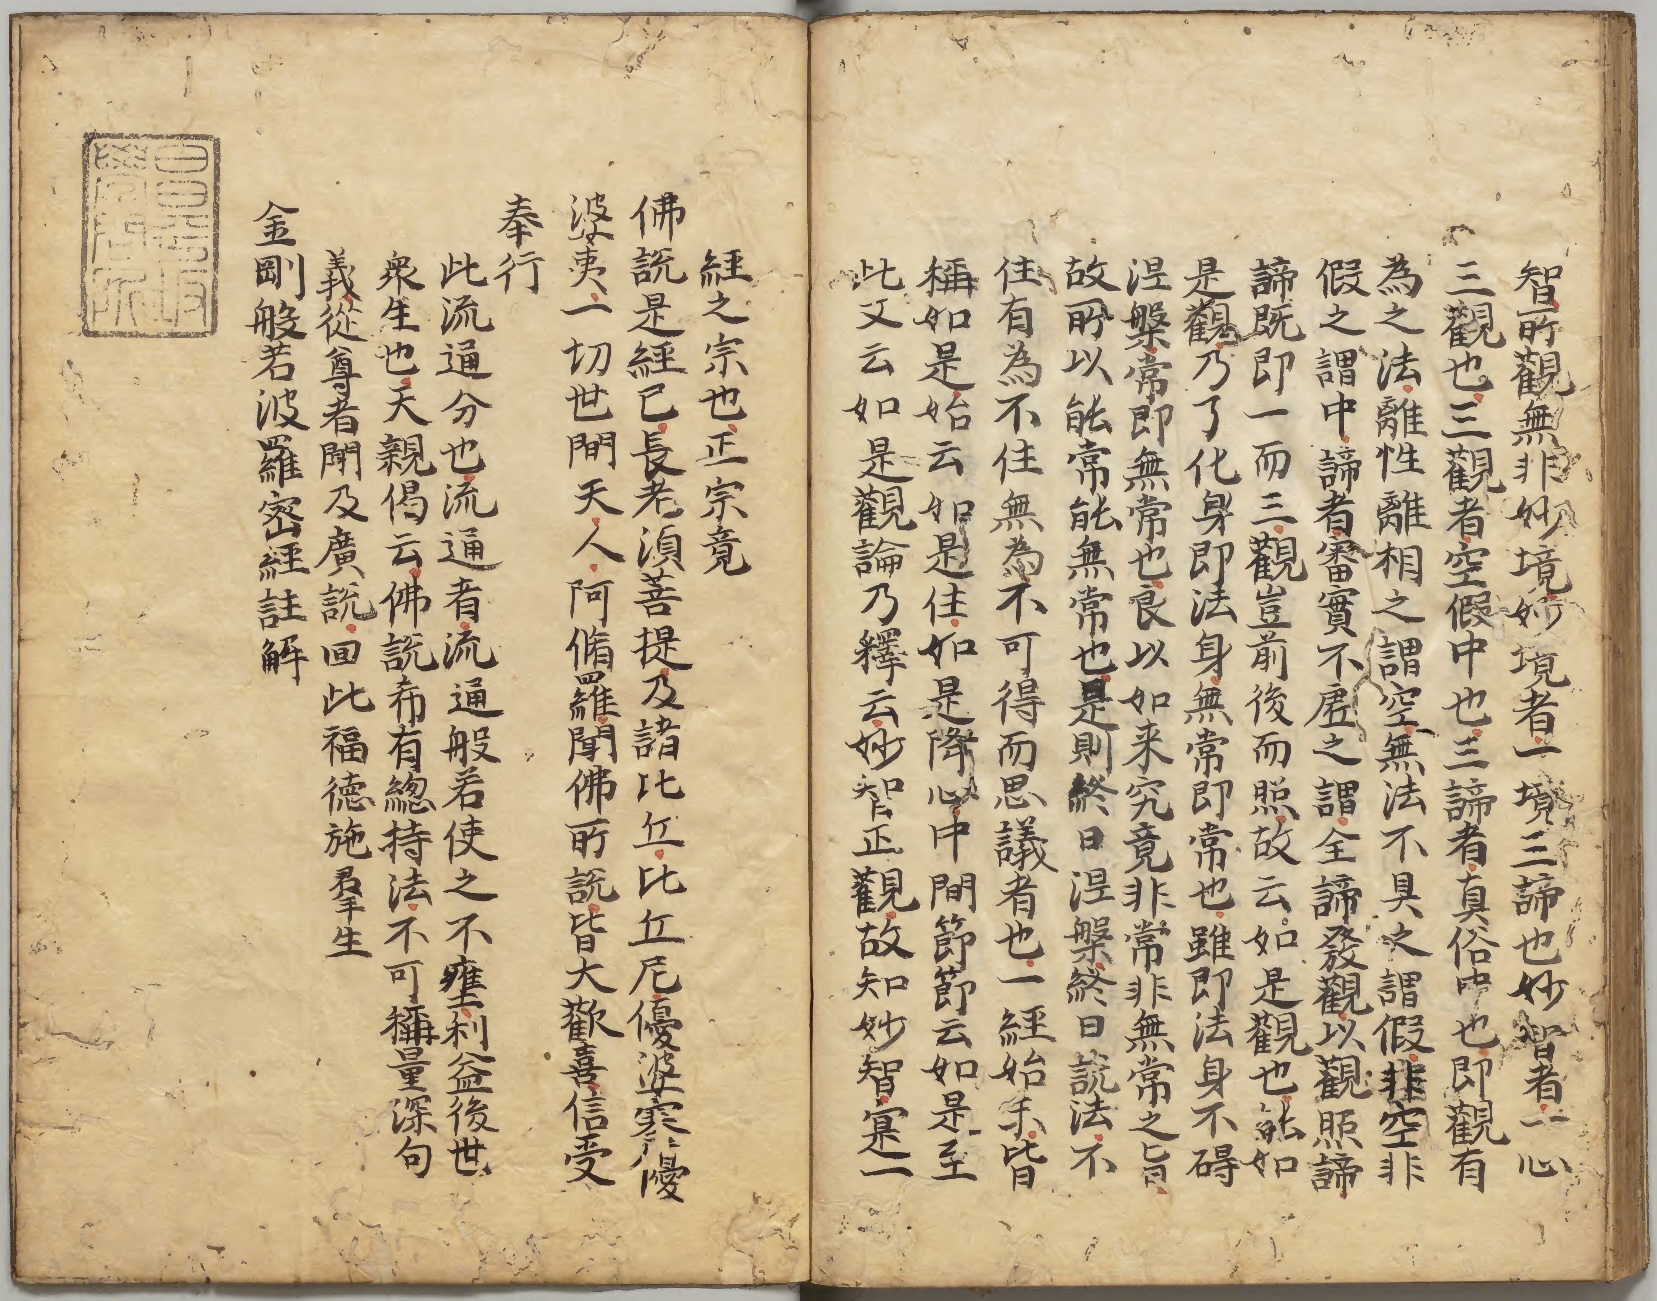 智所觀無非妙境妙境者一境三諦也妙智者一心
三觀也三觀者空假中也三諦者真俗中也即觀有
為之法離性離相之謂空無法不具之謂假非空非
假之謂中諦者審實不虛之謂全諦發觀以觀照諦
諦既即一而三觀豈前後而照故云如是觀也能如
是觀乃了化身即法身無常即常也雖即法身不碍
涅槃常即無常也良以如来究竟非常非無常之旨
故所以能常能無常也是則終日涅槃終日說法不
住有為不住無為不可得而思議者也一經始末皆
稱如是始云如是住如是降心中間節節云如是至
此又云如是觀論乃釋云妙智正觀故知妙智寔一
經之宗也正宗竟
佛說是經已長老湏菩提及諸比丘比丘尼優婆塞優
婆夷一切世間天人阿脩羅聞佛所說皆大歡喜信受
奉行
此流通分也流通者流通般若使之不壅利益後世
衆生也天親偈云佛說希有總持法不可稱量深句
義從尊者聞及廣說回此福德施羣生
金剛般若波羅密經註解